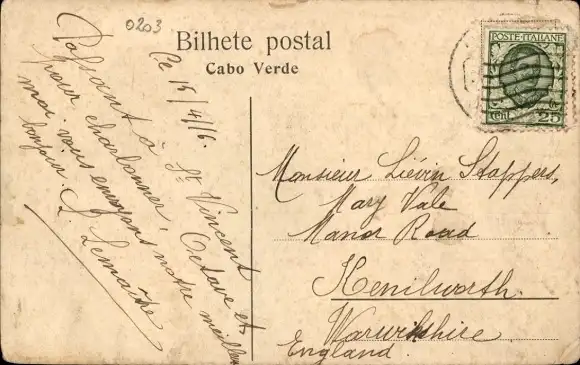 0203
Bilhete postal
Cabo Verde
Ce 15/4/16.
Passant à St Vincent
pour charbonner, Octave et
moi vous envoyons notre meilleur
bonjour. Lemaître
POSTE ITALIANE
Cent. 25
Monsieur Liévin Stappers,
Mary Vale
Manor Road
Kenilworth
Warwickshire
England.